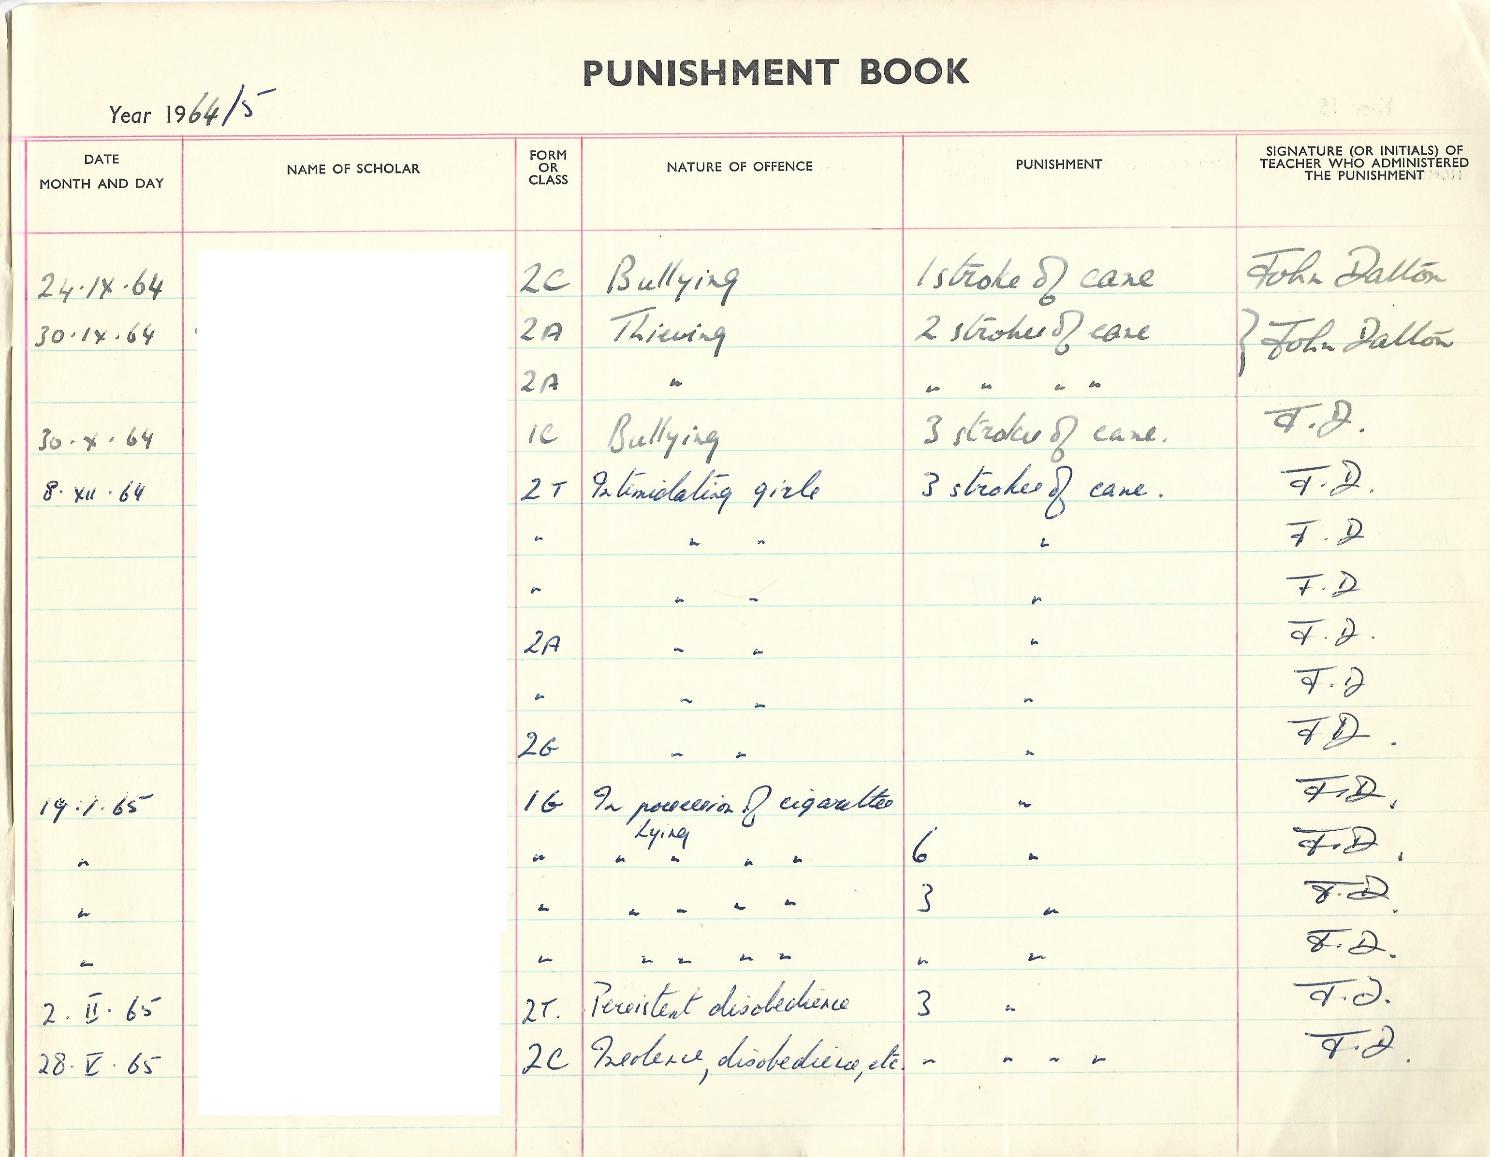 PUNISHMENT BOOK
Year 1964/5
DATE MONTH AND DAY NAME OF SCHOLAR FORM OR CLASS NATURE OF OFFENCE PUNISHMENT SIGNATURE (OR INITIALS) OF TEACHER WHO ADMINISTERED THE PUNISHMENT
24·IX·64 2C Bullying 1 stroke of cane John Dalton
30·IX·64 2A Thieving 2 strokes of cane } John Dalton
2A " " " " "
30·X·64 1C Bullying 3 strokes of cane. J.D.
8·XII·64 2T Intimidating girls 3 strokes of cane. J.D.
" " " " J.D
" " " " J.D
2A " " " J.D.
" " " " J.D
2G " " " J.D.
19·I·65 1G In possession of cigarettes " J.D.
Lying
" " " " " " 6 " J.D.
" " " " " " 3 " J.D.
" " " " " " " " J.D.
2·II·65 2T. Persistent disobedience 3 " J.D.
28·V·65 2C Insolence, disobedience, etc. " " " " J.D.